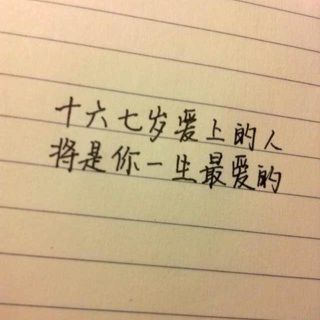 十六七岁爱上的人
将是你一生最爱的